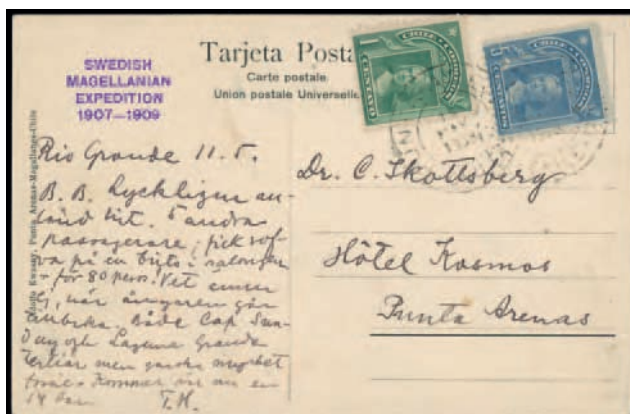 SWEDISH
MAGELLANIAN
EXPEDITION
1907—1909
Tarjeta Posta
Carte postale
Union postale Universelle
Rio Grande 11.5.
B. B. Lyckligen an-
länd hit. 5 andra
passagerare, fick sof-
va på en brits i salongen
för 80 pesos! Vet ännu
ej, när ångaren går
Både Cap Sun-
day och Laguna Grande
tertiär men ganska mycket
14 T.H.
Dr. C. Skottsberg
Hôtel Kosmos
Punta Arenas
Punta Arenas-Magallanes-Chile
1
5
CHILE
CHILE